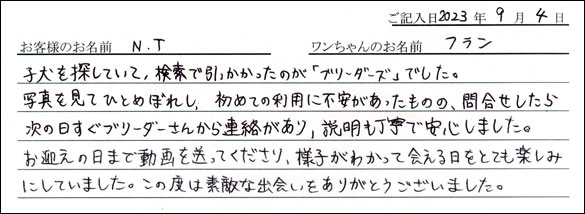 ご記入日2023年 9月 4日
お客様のお名前 N.T ワンちゃんのお名前 フラン
子犬を探していて、検索で引っかかったのが「ブリーダーズ」でした。
写真を見てひとめぼれし、初めての利用に不安があったものの、問合せしたら
次の日すぐブリーダーさんから連絡があり、説明も丁寧で安心しました。
お迎えの日まで動画を送ってくださり、様子がわかって会える日をとても楽しみ
にしていました。この度は素敵な出会いをありがとうございました。